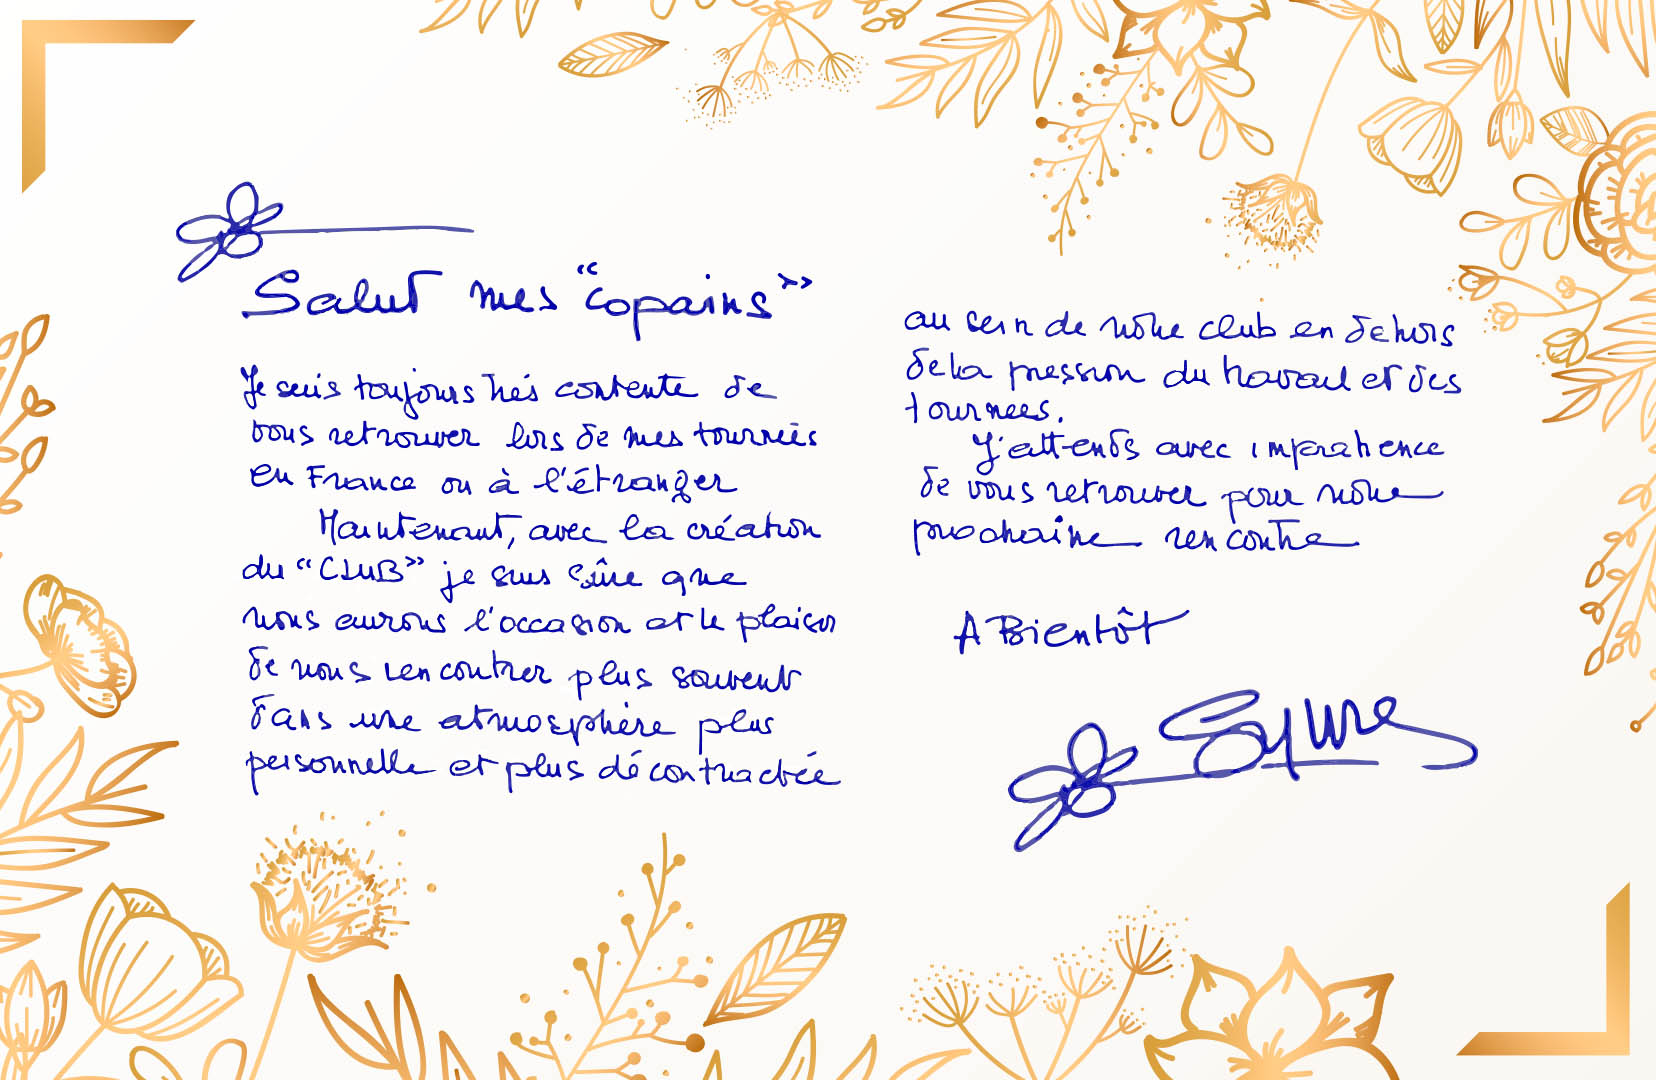 Salut mes "copains"
Je suis toujours très contente de
vous retrouver lors de mes tournées
en France ou à l'étranger
Maintenant, avec la création
du "CLUB" je suis sûre que
nous aurons l'occasion et le plaisir
de nous rencontrer plus souvent
dans une atmosphère plus
personnelle et plus décontractée
au sein de notre club en dehors
de la pression du travail et des
tournees.
J'attends avec impatience
de vous retrouver pour notre
prochaine rencontre
A Bientôt